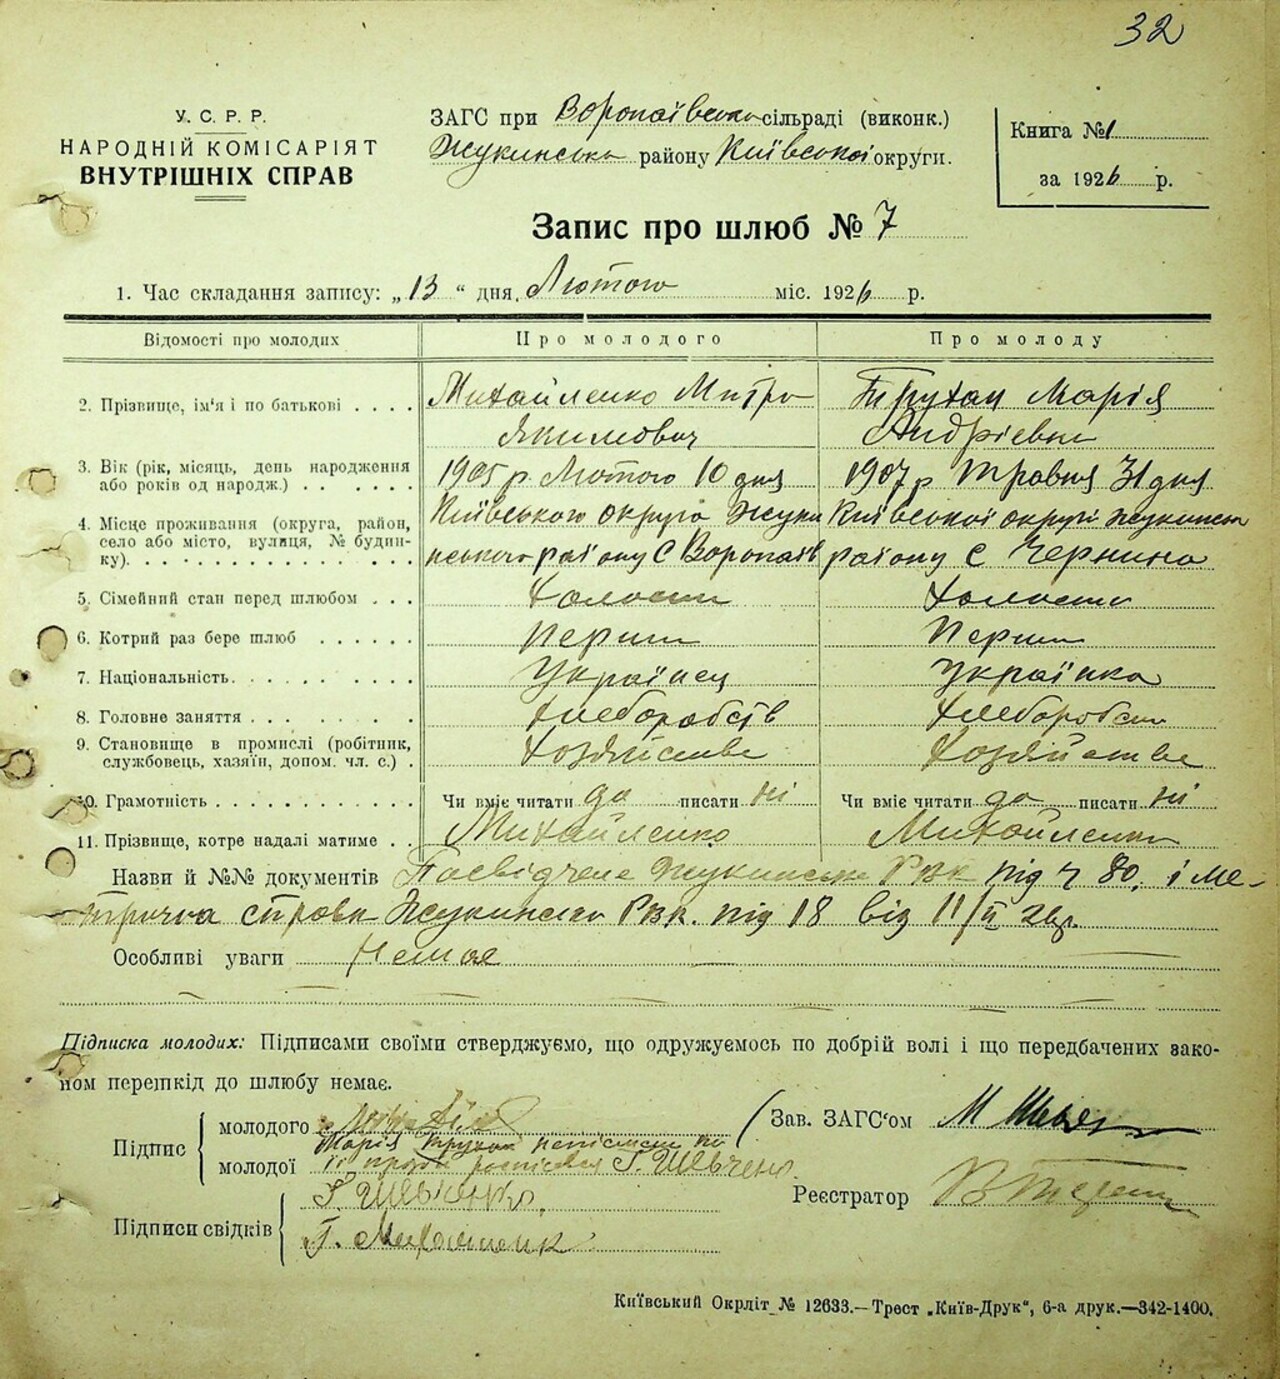 32
У. С. Р. Р.
НАРОДНІЙ КОМІСАРІЯТ
ВНУТРІШНІХ СПРАВ
ЗАГС при Воропаївсько сільраді (виконк.)
Жукинсько району Київської округи.
Книга № 1
за 1926 р.
Запис про шлюб № 7
1. Час складання запису: „13“ дня, Лютого міс. 1926 р.
Відомості про молодих
Про молодого
Про молоду
2. Прізвище, ім'я і по батькові . . . .
Михайленко Митро
Якимович
Трухан Марія
Андрієвна
3. Вік (рік, місяць, день народження
або років од народж.) . . . . . .
1905 р. Лютого 10 дня
1907 р Травня 31 дня
4. Місце проживання (округа, район,
село або місто, вулиця, № будин-
ку). . . . . . . . . . . . . . .
Київського округа Жуки
нського району С Воропаїв
Київської округи Жукинськ
району С Чернина
5. Сімейний стан перед шлюбом . . .
Холостий
Холоста
6. Котрий раз бере шлюб . . . . . .
Перший
Перший
7. Національність. . . . . . . . . .
Українец
Українка
8. Головне заняття . . . . . . . .
Хлеборобств
Хлеборобство
9. Становище в промислі (робітник,
службовець, хазяїн, допом. чл. с.) .
Хозяйстве
Хозяйстве
10. Грамотність . . . . . . . . . . .
Чи вміє читати да писати ні
Чи вміє читати да писати ні
11. Прізвище, котре надалі матиме . .
Михайленко
Михайленко
Назви й №№ документів Посвідчене Жукинське Рвк під ч 80, і ме-
трична справк Жукинсько Рвк. під 18 від 11/II 26р.
Особливі уваги Немае
Підписка молодих: Підписами своїми стверджуємо, що одружуємось по добрій волі і що передбачених зако-
ном перешкід до шлюбу немає.
Підпис
молодого
молодої
Марія Трухан неписмен по
її прозбі росписався Г. Шевченко
Зав. ЗАГС'ом М
Реєстратор В
Підписи свідків
Г. Шевченко,
Г. Михайленк
Київський Окрліт № 12633.—Трест „Київ-Друк“, 6-а друк.—342-1400.